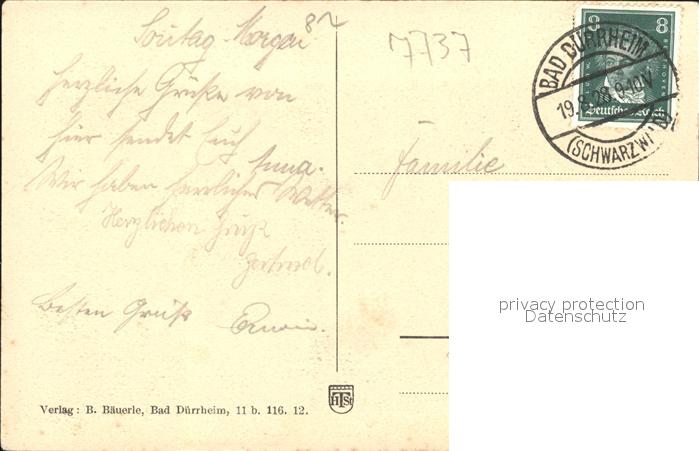 Sontag-Morgen
82
7737
Herzliche Grüße von
hier sendet Euch
Anna.
Wir haben herrliches Wetter.
Herzlichen Gruß
Gertrud.
Besten Gruß Erwin.
Verlag: B. Bäuerle, Bad Dürrheim, 11 b. 116. 12.
HTSt
8 8
Deutsches Reich
BAD DÜRRHEIM
9-10V
(SCHWARZW)
Familie
privacy protection
Datenschutz